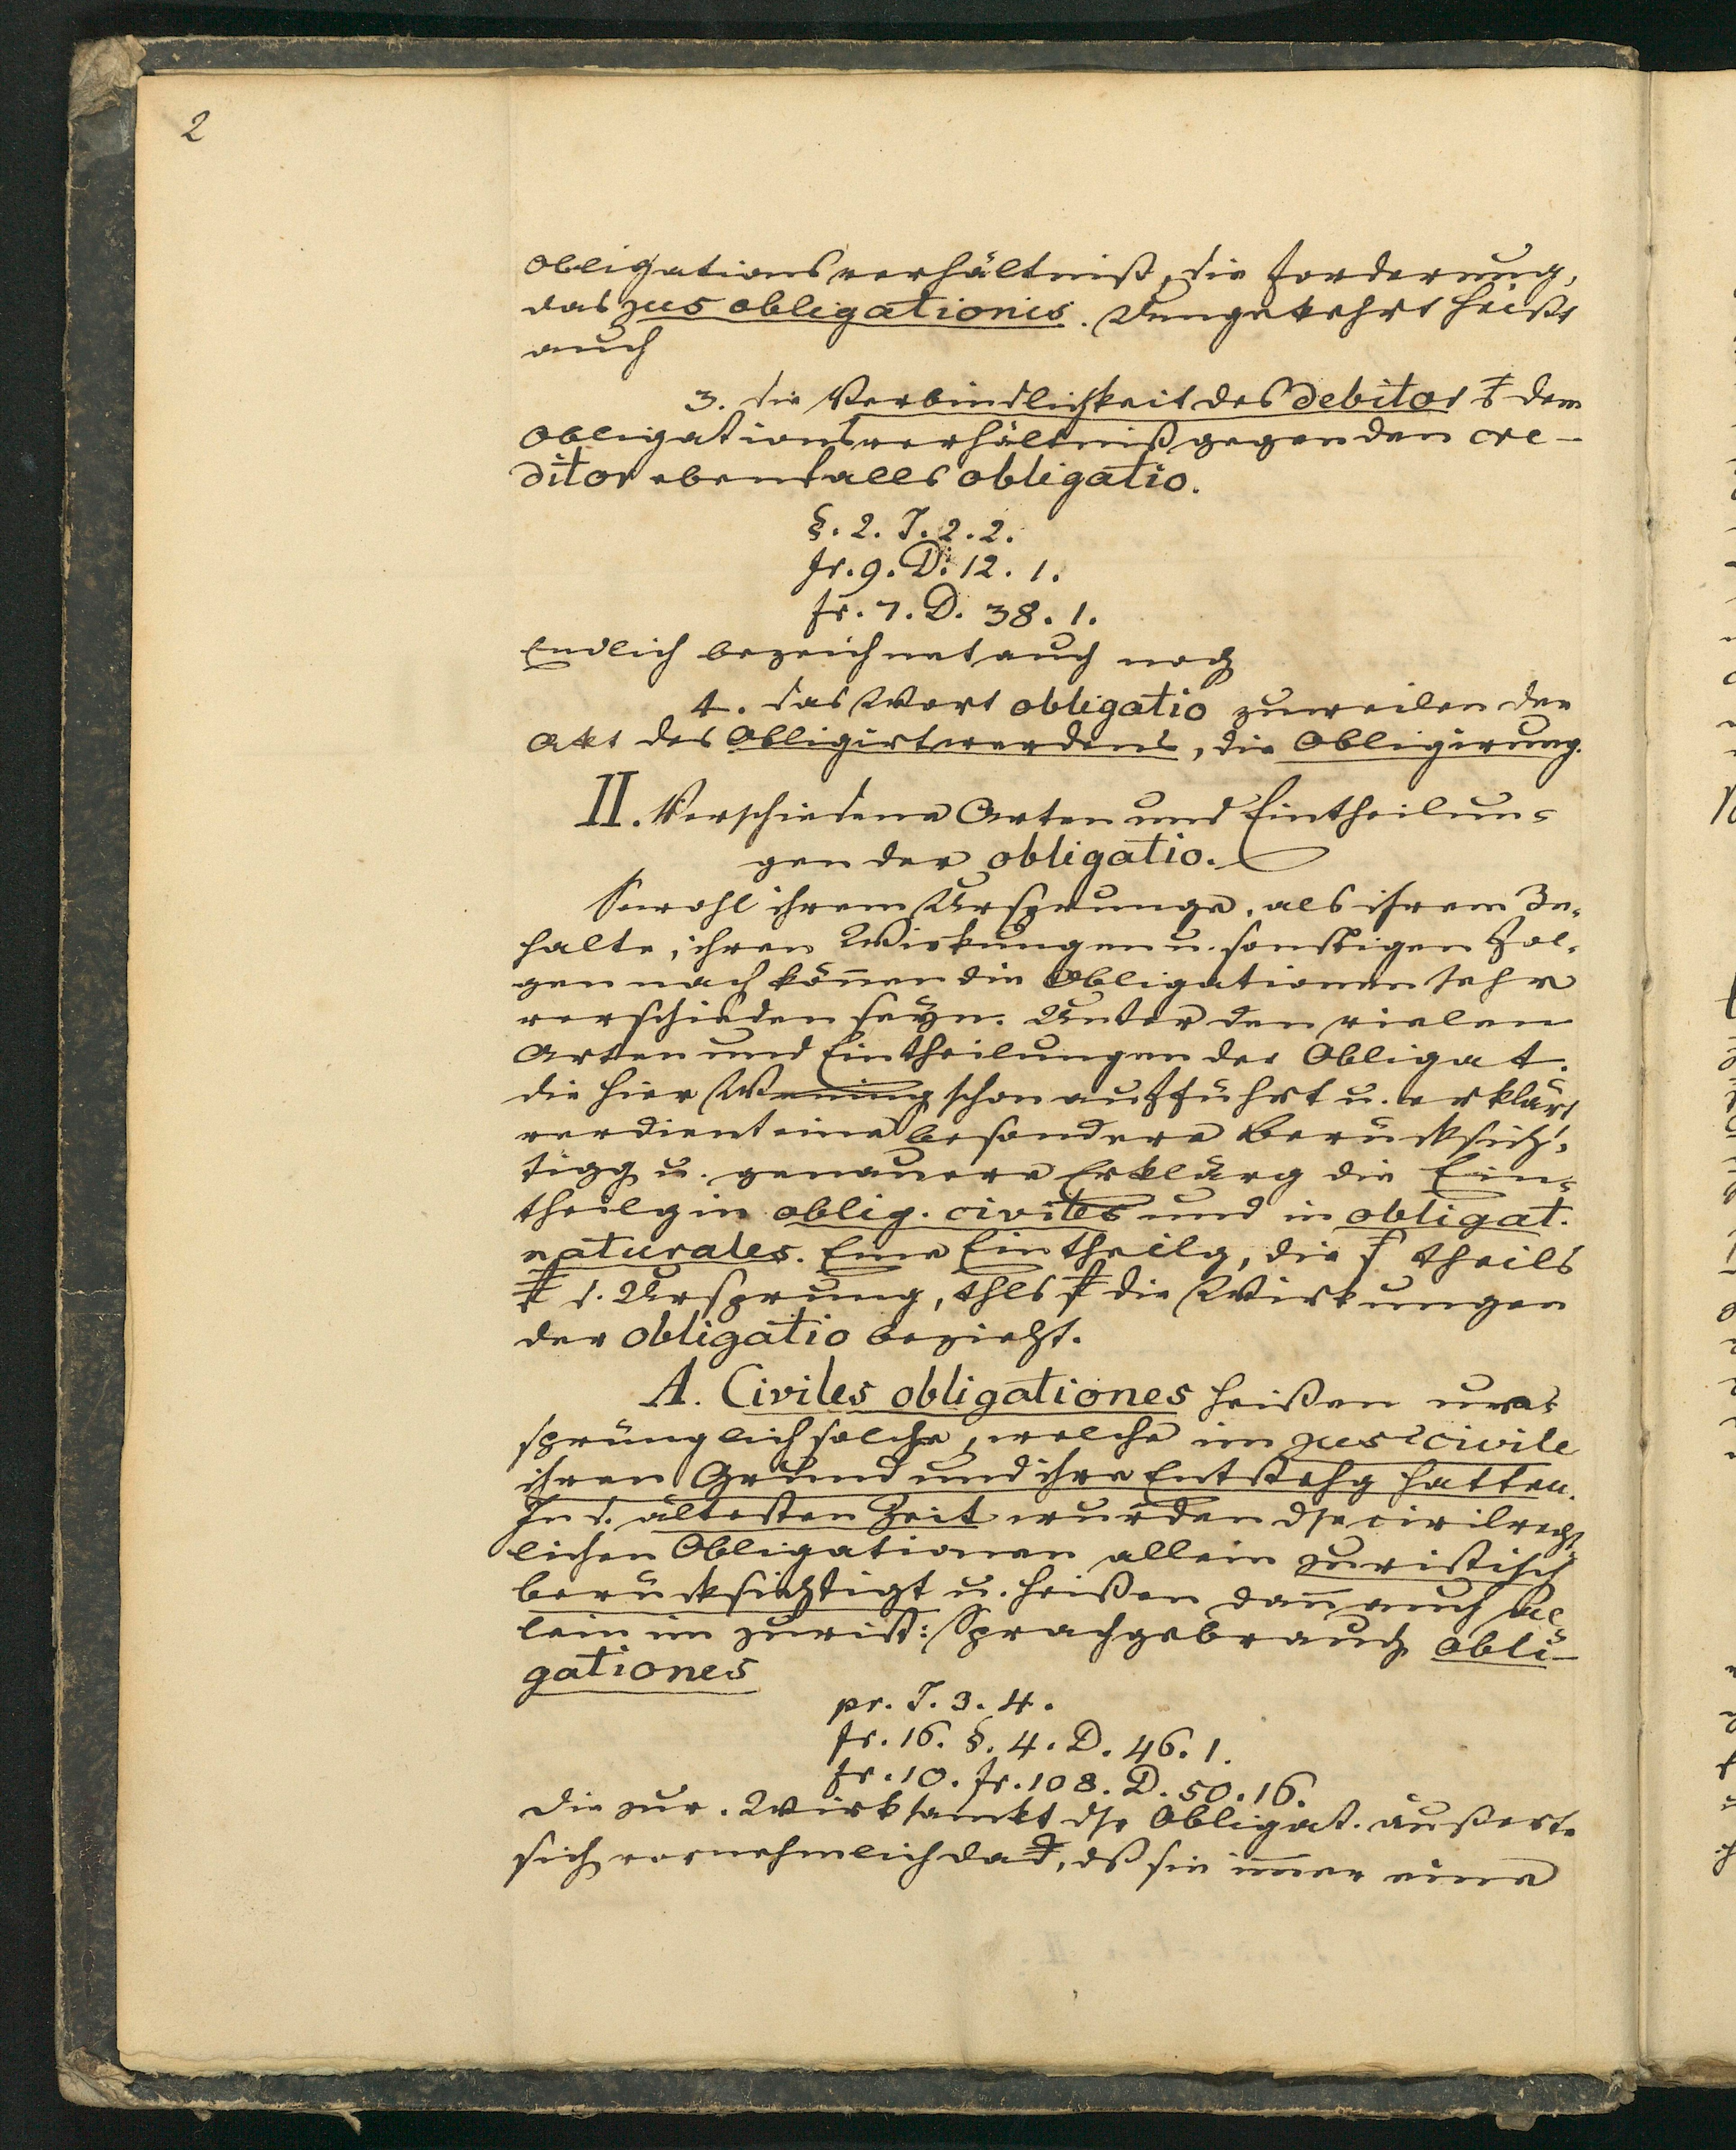 2
Obligationsverhältniß, die Forderung,
das jus obligationis. Umgekehrt heißt
auch
3. die Verbindlichkeit des debitor dem
Obligationsverhältniß gegen den cre-
ditor ebenfalls obligatio.
§. 2. J. 2. 2.
fr. 9. D. 12. 1.
fr. 7. D. 38. 1.
Endlich bezeichnet auch noch
4. das Wort obligatio zuweilen den
Akt des Obligirtwerdens, die Obligirung.
II. Verschiedene Arten und Eintheilun-
gen der obligatio.
Sowohl ihrem Ursprunge, als ihrem In-
halte, ihren Wirkungen u. sonstigen Fol-
gen nach können die Obligationen sehr
verschieden seyn. Unter den vielen
Arten und Eintheilungen der Obligat.
die hier Wening schon aufführt u. erklärt
verdient eine besondere Berücksich-
tigg u. genauere Erklärg die Ein-
theilg in oblig. civiles und in obligat.
naturales. Eine Eintheilg, die theils
d. Ursprung, thls die Wirkungen
der obligatio bezieht.
A. Civiles obligationes heißen ur-
sprünglich solche, welche im jus civile
ihren Grund und ihre Entstehg hatten.
In d. ältesten Zeit wurden dse civilrecht-
lichen Obligationen allein juristisch
berücksichtigt u. heißen dann auch al-
lein im jurist: Sprachgebrauch obli-
gationes
pr. J. 3. 4.
fr. 16. §. 4. D. 46. 1.
fr. 10. fr. 108. D. 50. 16.
Die jur. Wirksamkt dsr Obligat. äußerte
sich vornehmlich dß sie immer eine